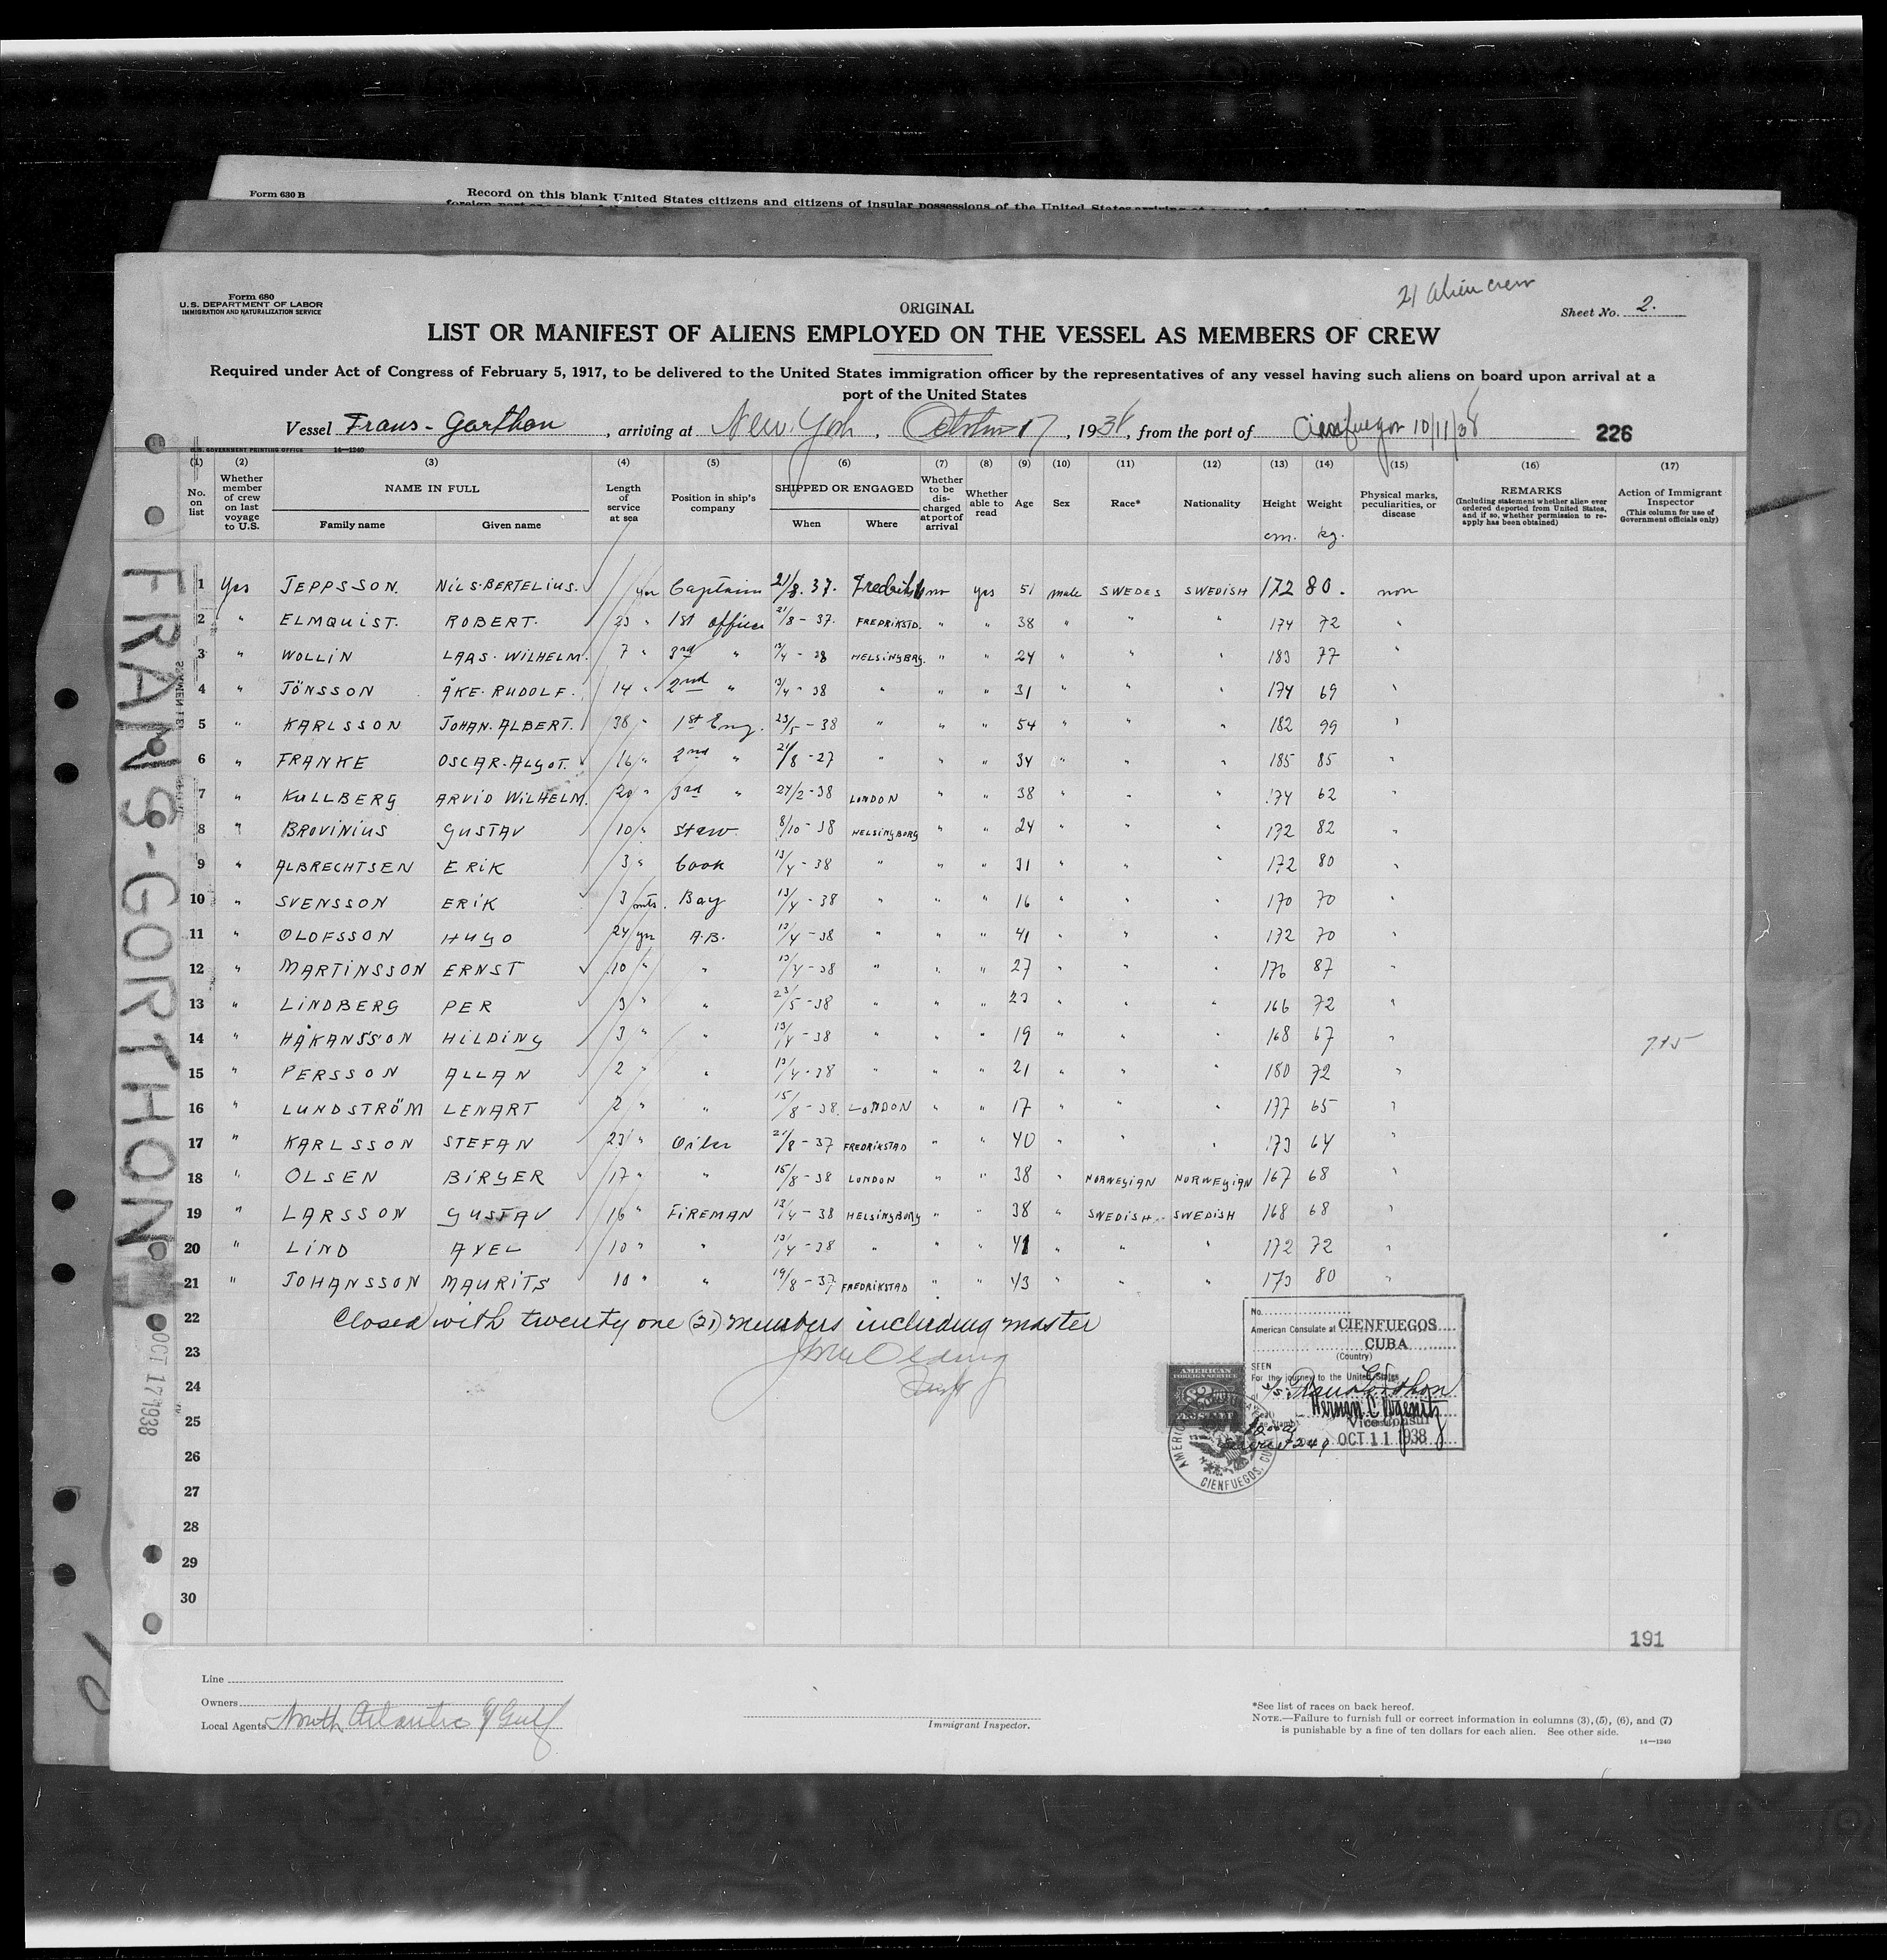 Form 630 B
Record on this blank United States citizens and citizens of insular possessions of the United States
Form 680
U.S. DEPARTMENT OF LABOR
IMMIGRATION AND NATURALIZATION SERVICE
ORIGINAL
21 alien crew
Sheet No. 2.
LIST OR MANIFEST OF ALIENS EMPLOYED ON THE VESSEL AS MEMBERS OF CREW
Required under Act of Congress of February 5, 1917, to be delivered to the United States immigration officer by the representatives of any vessel having such aliens on board upon arrival at a
port of the United States
Vessel Frans-Gorthon, arriving at New York, October 17, 1938, from the port of Cienfuegos 10/11/38
226
U.S. GOVERNMENT PRINTING OFFICE 14—1240
(1) (2) (3) (4) (5) (6) (7) (8) (9) (10) (11) (12) (13) (14) (15) (16) (17)
No. on list
Whether member of crew on last voyage to U.S.
NAME IN FULL
Family name Given name
Length of service at sea
Position in ship's company
SHIPPED OR ENGAGED
When Where
Whether to be discharged at port of arrival
Whether able to read
Age Sex Race* Nationality Height Weight
cm. kg.
Physical marks, peculiarities, or disease
REMARKS
(Including statement whether alien ever ordered deported from United States, and if so, whether permission to reapply has been obtained)
Action of Immigrant Inspector
(This column for use of Government officials only)
1 Yes JEPPSSON. NILS-BERTELIUS. yrs Captain 21/8. 37. no yes 51 male SWEDES SWEDISH 172 80. non
2 " ELMQUIST. ROBERT. 23 " 1st officer 21/8 - 37. FREDRIKSTD. " " 38 " " " 174 72 "
3 " WOLLIN LARS. WILHELM. 7 " 3rd " 13/4 - 38 HELSINGBRG. " " 24 " " " 183 77 "
4 " JÖNSSON ÅKE. RUDOLF. 14 " 2nd " 13/4 - 38 " " " 31 " " " 174 69 "
5 " KARLSSON JOHAN. ALBERT. 38 " 1st Eng. 23/5 - 38 " " " 54 " " " 182 99 "
6 " FRANKE OSCAR. ALGOT. 16 " 2nd " 21/8 - 27 " " " 34 " " " 185 85 "
7 " KULLBERG ARVID WILHELM. 20 " 3rd " 24/2 - 38 LONDON " " 38 " " " 174 62 "
8 " BROVINIUS GUSTAV 10 " Stew. 8/10 - 38 HELSINGBORG " " 24 " " " 172 82 "
9 " ALBRECHTSEN ERIK 3 " Cook 13/4 - 38 " " " 31 " " " 172 80 "
10 " SVENSSON ERIK 3 mts. Boy 13/4 - 38 " " " 16 " " " 170 70 "
11 " OLOFSSON HUGO 24 yrs A.B. 13/4 - 38 " " " 41 " " " 172 70 "
12 " MARTINSSON ERNST 10 " " 13/4 - 38 " " " 27 " " " 176 87 "
13 " LINDBERG PER 3 " " 23/5 - 38 " " " 23 " " " 166 72 "
14 " HÅKANSSON HILDING 3 " " 13/4 - 38 " " " 19 " " " 168 67 "
15 " PERSSON ALLAN 2 " " 13/4 - 38 " " " 21 " " " 180 72 "
16 " LUNDSTRÖM LENART 2 " " 15/8 - 38. LONDON " " 17 " " " 177 65 "
17 " KARLSSON STEFAN 23 " Oiler 21/8 - 37 FREDRIKSTAD " " 40 " " " 173 64 "
18 " OLSEN BIRGER 17 " " 15/8 - 38 LONDON " " 38 " NORWEGIAN NORWEGIAN 167 68 "
19 " LARSSON GUSTAV 16 " FIREMAN 13/4 - 38 HELSINGBORG " " 38 " SWEDISH SWEDISH 168 68 "
20 " LIND AXEL 10 " " 13/4 - 38 " " " 41 " " " 172 72 "
21 " JOHANSSON MAURITS 10 " " 19/8 - 37 FREDRIKSTAD " " 43 " " " 173 80 "
22 Closed with twenty one (21) members including master
23
24
25
26
27
28
29
30
FRANS-GORTHON
OCT 17 1938
No.
American Consulate at CIENFUEGOS
CUBA
(Country)
SEEN
For the journey to the United States
Vice Consul
OCT 11 1938
AMERICAN
FOREIGN SERVICE
$2
CIENFUEGOS, CUBA
191
Line
Owners
Local Agents North Atlantic & Gulf
Immigrant Inspector.
*See list of races on back hereof.
NOTE.—Failure to furnish full or correct information in columns (3), (5), (6), and (7)
is punishable by a fine of ten dollars for each alien. See other side.
14—1240